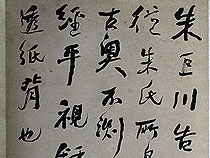 朱巨川告
從朱氏所見
古奧不測
經平視
透紙背也